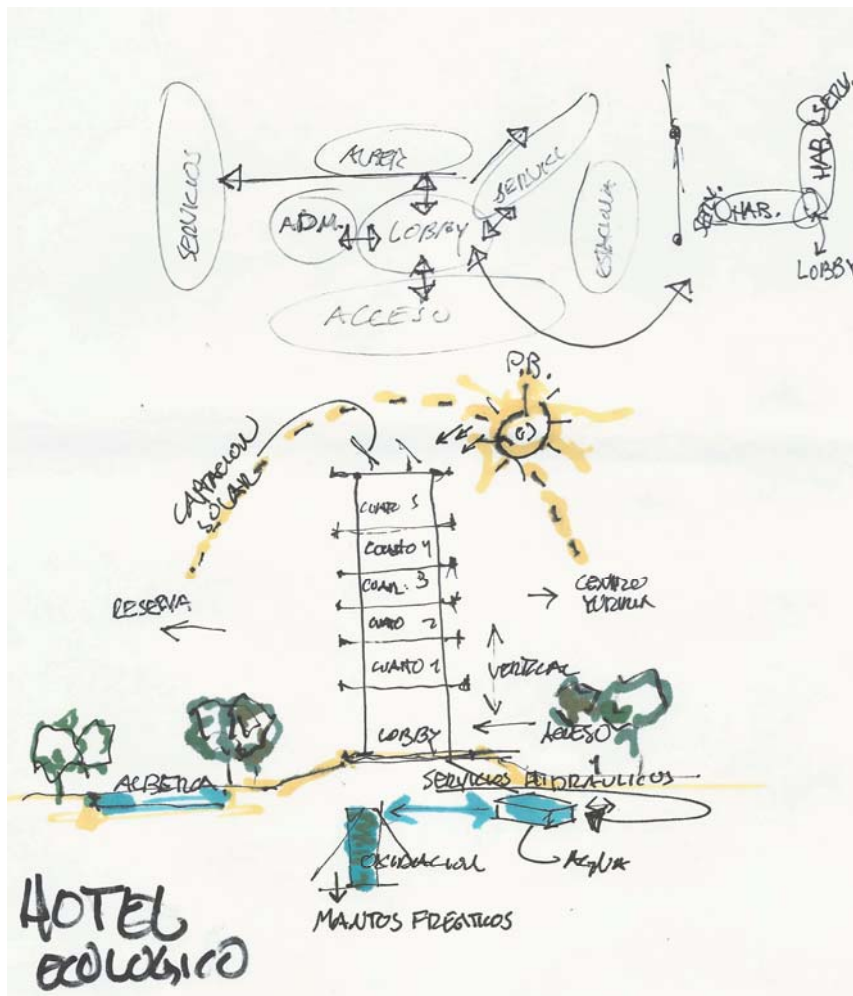 SERVICIOS
ALBER
SERVICI
ADM.
LOBBY
ESTACIONA
ACCESO
SERV.
HAB.
SERV.
HAB.
LOBBY
P.B.
CAPTACION
SOLAR
CUARTO 5
CUARTO 4
CUAR. 3
CUARTO 2
CUARTO 1
LOBBY
RESERVA
CENTRO
YURIRIA
VERTICAL
ACCESO
ALBERCA
SERVICIOS HIDRÁULICOS
OXIDACION
AGUA
MANTOS FREATICOS
HOTEL
ECOLOGICO